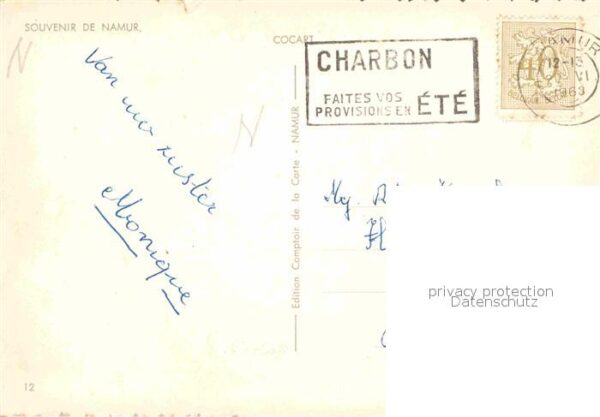 SOUVENIR DE NAMUR,
COCART
CHARBON
FAITES VOS
PROVISIONS EN ÉTÉ
NAMUR
12-13
VI
1963
40
N
N
Van uw zuster
Monique
Edition Comptoir de la Carte - NAMUR
privacy protection
Datenschutz
12